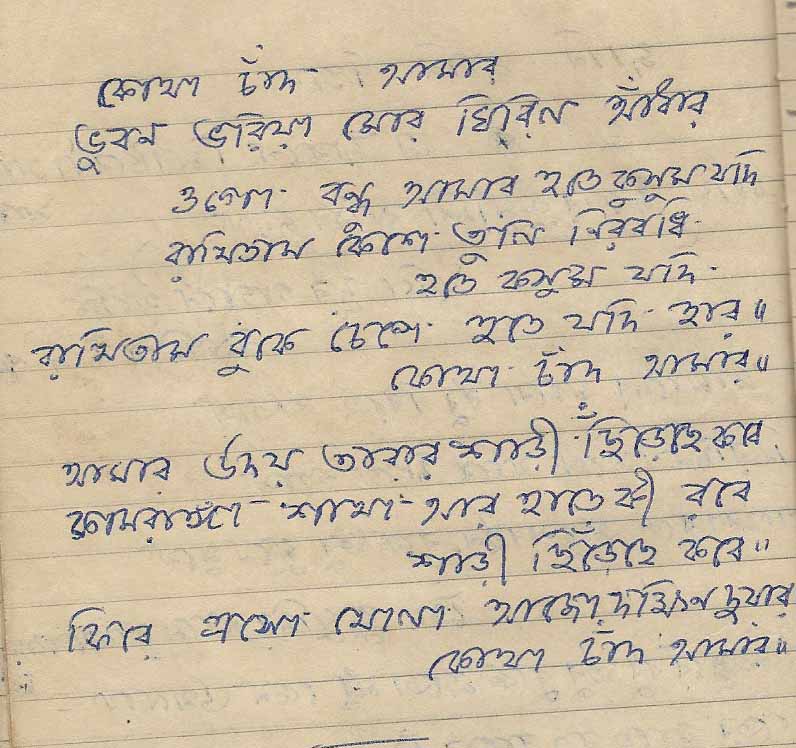 কোথা চাঁদ আমার
ভুবন ভরিয়া মোর ঘিরিল আঁধার
ওগো বন্ধু আমার হতে কুসুম যদি
রাখিতাম কেশে তুলি নিরবধি
হতে কুসুম যদি
রাখিতাম বুকে চেপে হতে যদি হার॥
কোথা চাঁদ আমার॥
আমার উদয় তারার শাড়ী ছিঁড়েছে কবে
কামরাঙ্গা শাখা আর হাতে কী রবে
শাড়ী ছিঁড়েছে কবে॥
ফিরে এসো খোলা আজো দক্ষিন দুয়ার
কোথা চাঁদ আমার॥